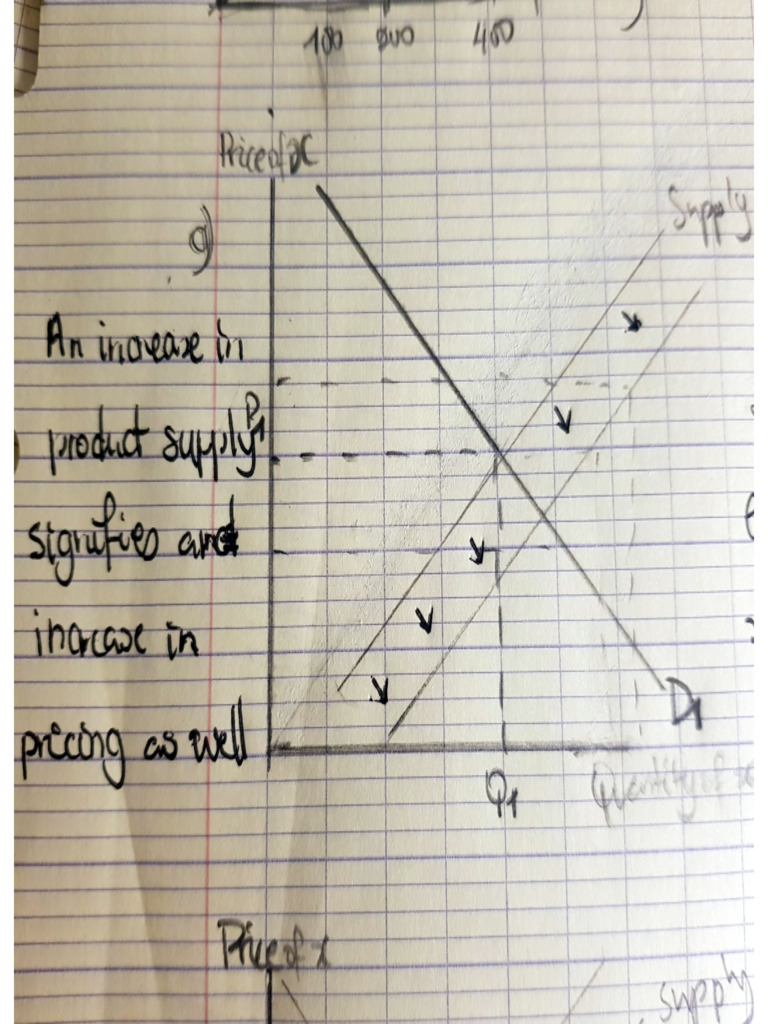 100
400
Price of x
Supply
g)
An increase in
product supply
P1
signifies and
increase in
pricing as well
D1
Q1
Quantity of x
Price of x
supply